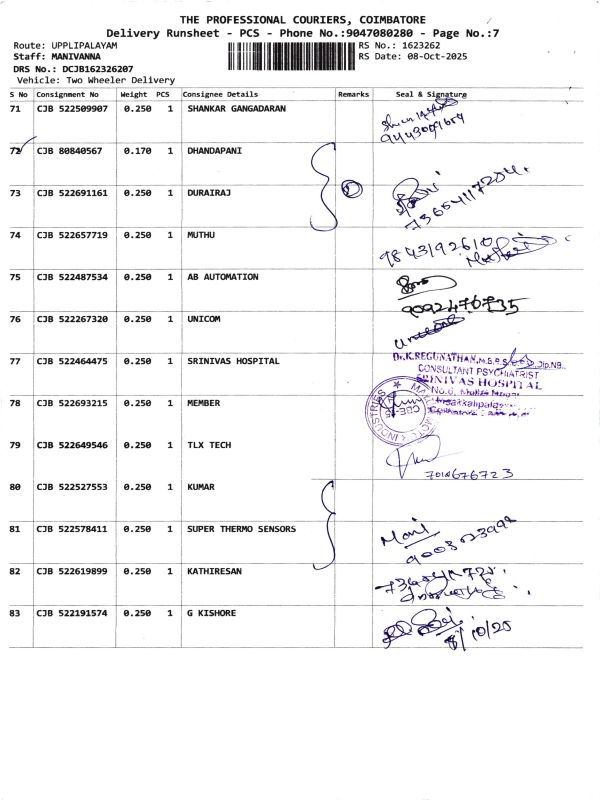 THE PROFESSIONAL COURIERS, COIMBATORE
Delivery Runsheet - PCS - Phone No.:9047080280 - Page No.:7
Route: UPPLIPALAYAM
RS No.: 1623262
Staff: MANIVANNA
RS Date: 08-Oct-2025
DRS No.: DCJB162326207
Vehicle: Two Wheeler Delivery
S No Consignment No Weight PCS Consignee Details Remarks Seal & Signature
71 CJB 522509907 0.250 1 SHANKAR GANGADARAN
72 CJB 80840567 0.170 1 DHANDAPANI
73 CJB 522691161 0.250 1 DURAIRAJ
74 CJB 522657719 0.250 1 MUTHU
9843192610
75 CJB 522487534 0.250 1 AB AUTOMATION
9092476735
76 CJB 522267320 0.250 1 UNICOM
77 CJB 522464475 0.250 1 SRINIVAS HOSPITAL
Dr.K.REGUNATHAN,
CONSULTANT PSYCHIATRIST
SRINIVAS HOSPITAL
78 CJB 522693215 0.250 1 MEMBER
INDUSTRIES
79 CJB 522649546 0.250 1 TLX TECH
80 CJB 522527553 0.250 1 KUMAR
81 CJB 522578411 0.250 1 SUPER THERMO SENSORS
Mani
82 CJB 522619899 0.250 1 KATHIRESAN
83 CJB 522191574 0.250 1 G KISHORE
8/10/25